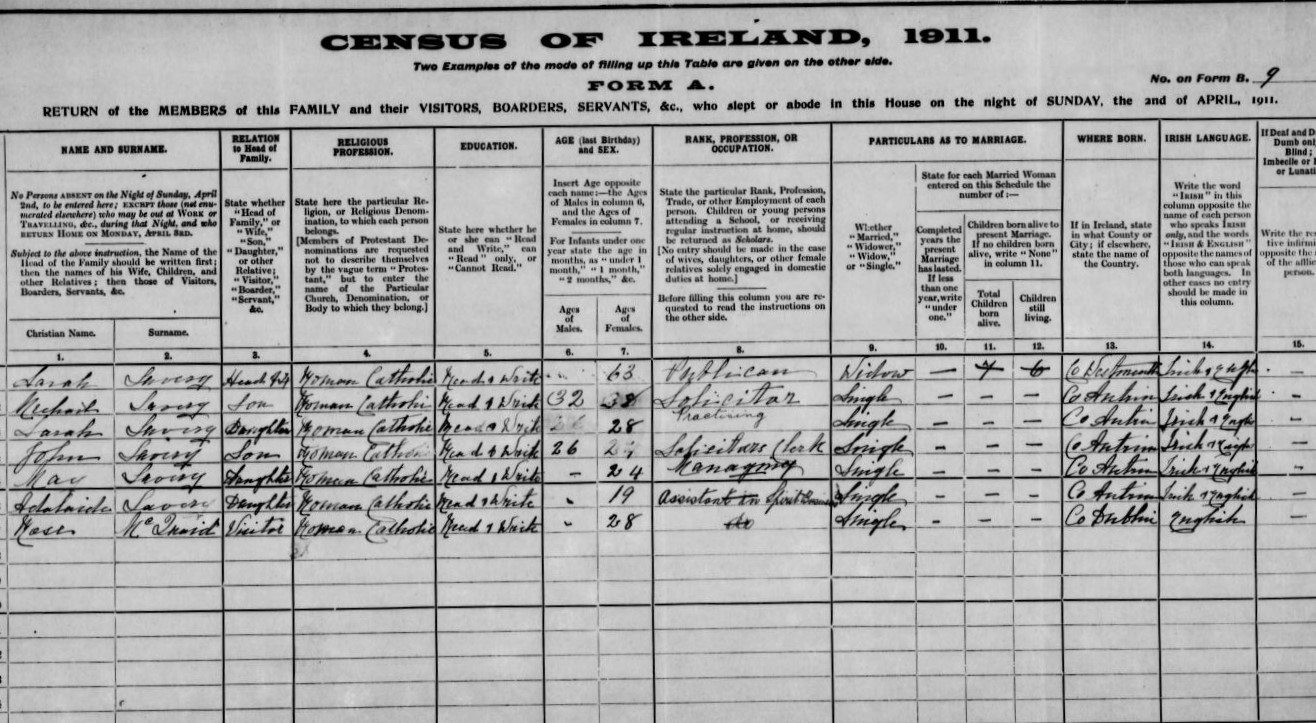 CENSUS OF IRELAND, 1911.
Two Examples of the mode of filling up this Table are given on the other side.
FORM A.
No. on Form B. 9
RETURN of the MEMBERS of this FAMILY and their VISITORS, BOARDERS, SERVANTS, &c., who slept or abode in this House on the night of SUNDAY, the 2nd of APRIL, 1911.
NAME AND SURNAME.
No Persons ABSENT on the Night of Sunday, April 2nd, to be entered here; EXCEPT those (not enumerated elsewhere) who may be out at WORK or TRAVELLING, &c., during that Night, and who RETURN HOME ON MONDAY, APRIL 3RD.
Subject to the above instruction, the Name of the Head of the Family should be written first; then the names of his Wife, Children, and other Relatives; then those of Visitors, Boarders, Servants, &c.
Christian Name.
Surname.
RELATION to Head of Family.
State whether "Head of Family," or "Wife," "Son," "Daughter," or other Relative; "Visitor," "Boarder," "Servant," &c.
RELIGIOUS PROFESSION.
State here the particular Religion, or Religious Denomination, to which each person belongs.
[Members of Protestant Denominations are requested not to describe themselves by the vague term "Protestant," but to enter the name of the Particular Church, Denomination, or Body to which they belong.]
EDUCATION.
State here whether he or she can "Read and Write," can "Read" only, or "Cannot Read."
AGE (last Birthday) and SEX.
Insert Age opposite each name:—the Ages of Males in column 6, and the Ages of Females in column 7.
For Infants under one year state the age in months, as "under 1 month," "1 month," "2 months," &c.
Ages of Males.
Ages of Females.
RANK, PROFESSION, OR OCCUPATION.
State the particular Rank, Profession, Trade, or other Employment of each person. Children or young persons attending a School, or receiving regular instruction at home, should be returned as Scholars.
[No entry should be made in the case of wives, daughters, or other female relatives solely engaged in domestic duties at home.]
Before filling this column you are requested to read the instructions on the other side.
PARTICULARS AS TO MARRIAGE.
Whether "Married," "Widower," "Widow," or "Single."
State for each Married Woman entered on this Schedule the number of :—
Completed years the present Marriage has lasted. If less than one year, write "under one."
Children born alive to present Marriage. If no children born alive, write "None" in column 11.
Total Children born alive.
Children still living.
WHERE BORN.
If in Ireland, state in what County or City; if elsewhere, state the name of the Country.
IRISH LANGUAGE.
Write the word "IRISH" in this column opposite the name of each person who speaks IRISH only, and the words "IRISH & ENGLISH" opposite the names of those who can speak both languages. In other cases no entry should be made in this column.
If Deaf and D
Dumb only
Blind;
Imbecile or
or Lunati
Write the re
tive infirm
opposite the
of the afflic
person.
1. 2. 3. 4. 5. 6. 7. 8. 9. 10. 11. 12. 13. 14. 15.
Sarah Roman Catholic Read & Write 63 Publican Widow — 7 6 —
Savery Son Roman Catholic Read & Write 32 Solicitor Practising Single — — — Co Antrim Irish & English —
Sarah Savery Daughter Roman Catholic Read & Write 28 Single — — — Co Antrim Irish & English —
John Savery Son Roman Catholic Read & Write 26 Solicitors Clerk Single — — — Co Antrim Irish & English —
Savery Daughter Roman Catholic Read & Write — 24 Managing Single — — — Co Antrim Irish & English —
Adelaide Savery Daughter Roman Catholic Read & Write 19 Assistant in Spirit Single — — — Co Antrim Irish & English —
Rose Visitor Roman Catholic Read & Write 28 do Single — — — Co Dublin English —